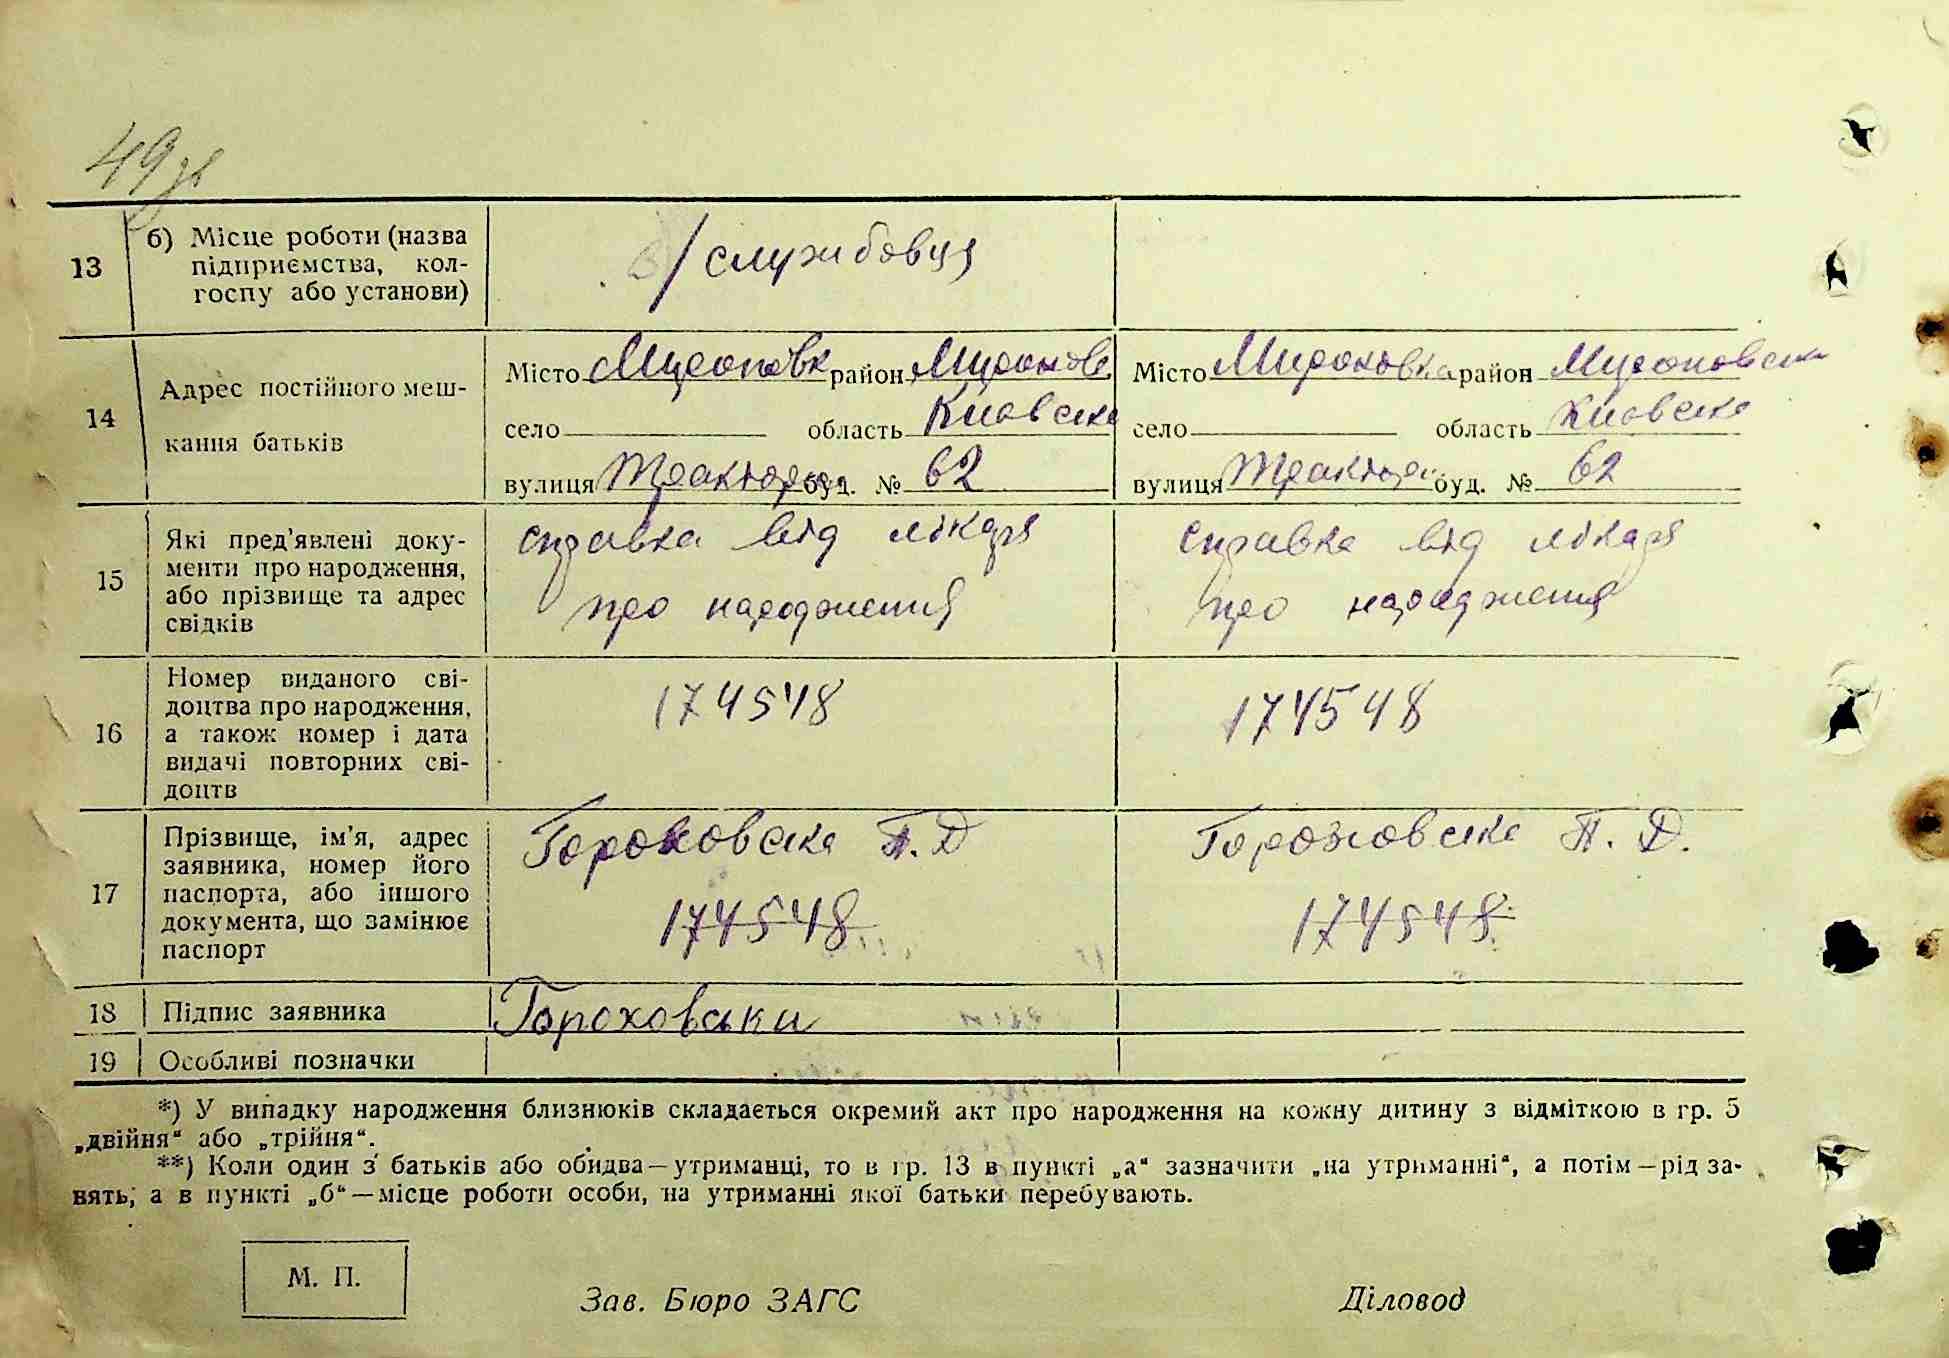 49зв
13 б) Місце роботи (назва підприємства, колгоспу або установи) / службовця
14 Адрес постійного мешкання батьків
Місто Миронівк район Миронов Місто Мироновка район Мироновськ
село область Киовська село область Киовска
вулиця Тракторна буд. № 62 вулиця Трактор буд. № 62
15 Які пред'явлені документи про народження, або прізвище та адрес свідків
справка від лікаря справка від лікаря
про народження про народження
16 Номер виданого свідоцтва про народження, а також номер і дата видачі повторних свідоцтв
174548 174548
17 Прізвище, ім'я, адрес заявника, номер його паспорта, або іншого документа, що замінює паспорт
Гороховська П. Д Гороховска П. Д.
174548 174548
18 Підпис заявника Гороховськи
19 Особливі позначки
*) У випадку народження близнюків складається окремий акт про народження на кожну дитину з відміткою в гр. 5
„двійня“ або „трійня“.
**) Коли один з батьків або обидва—утриманці, то в гр. 13 в пункті „а“ зазначити „на утриманні“, а потім—рід за-
нять, а в пункті „б“—місце роботи особи, на утриманні якої батьки перебувають.
М. П.
Зав. Бюро ЗАГС Діловод